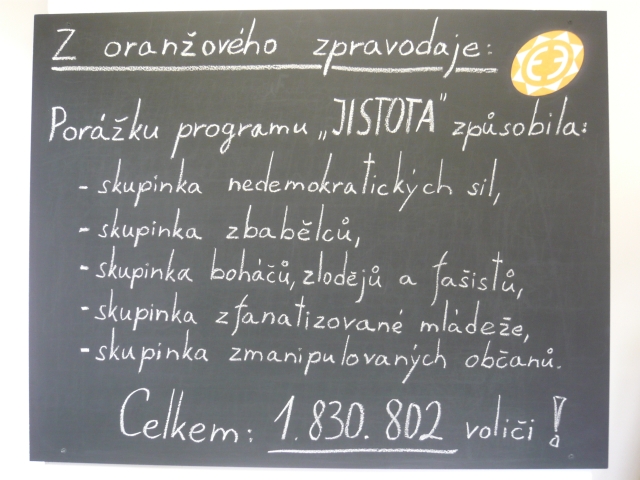 Z oranžového zpravodaje:
Porážku programu „JISTOTA" způsobila:
- skupinka nedemokratických sil,
- skupinka zbabělců,
- skupinka boháčů, zlodějů a fašistů,
- skupinka zfanatizované mládeže,
- skupinka zmanipulovaných občanů.
Celkem: 1.830.802 voliči!